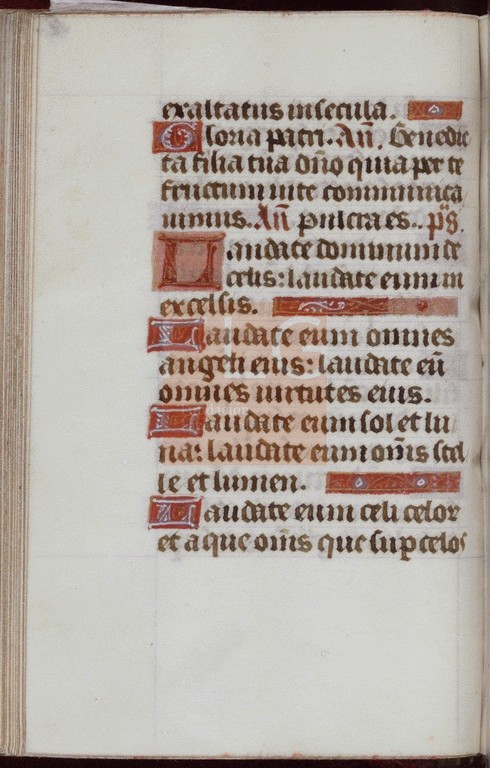 exaltatus in secula.
Gloria patri. Añ. Benedic
ta filia tua dño quia per te
fructum vite communica
vimus. Añ pulcra es. ps̃.
Laudate dominum de
celis: laudate eum in
excelsis.
Laudate eum omnes
angeli eius: laudate eũ
omnes virtutes eius.
Laudate eum sol et lu
na: laudate eum om̃s stel
le et lumen.
Laudate eum celi celor
et aque om̃s que sup celos